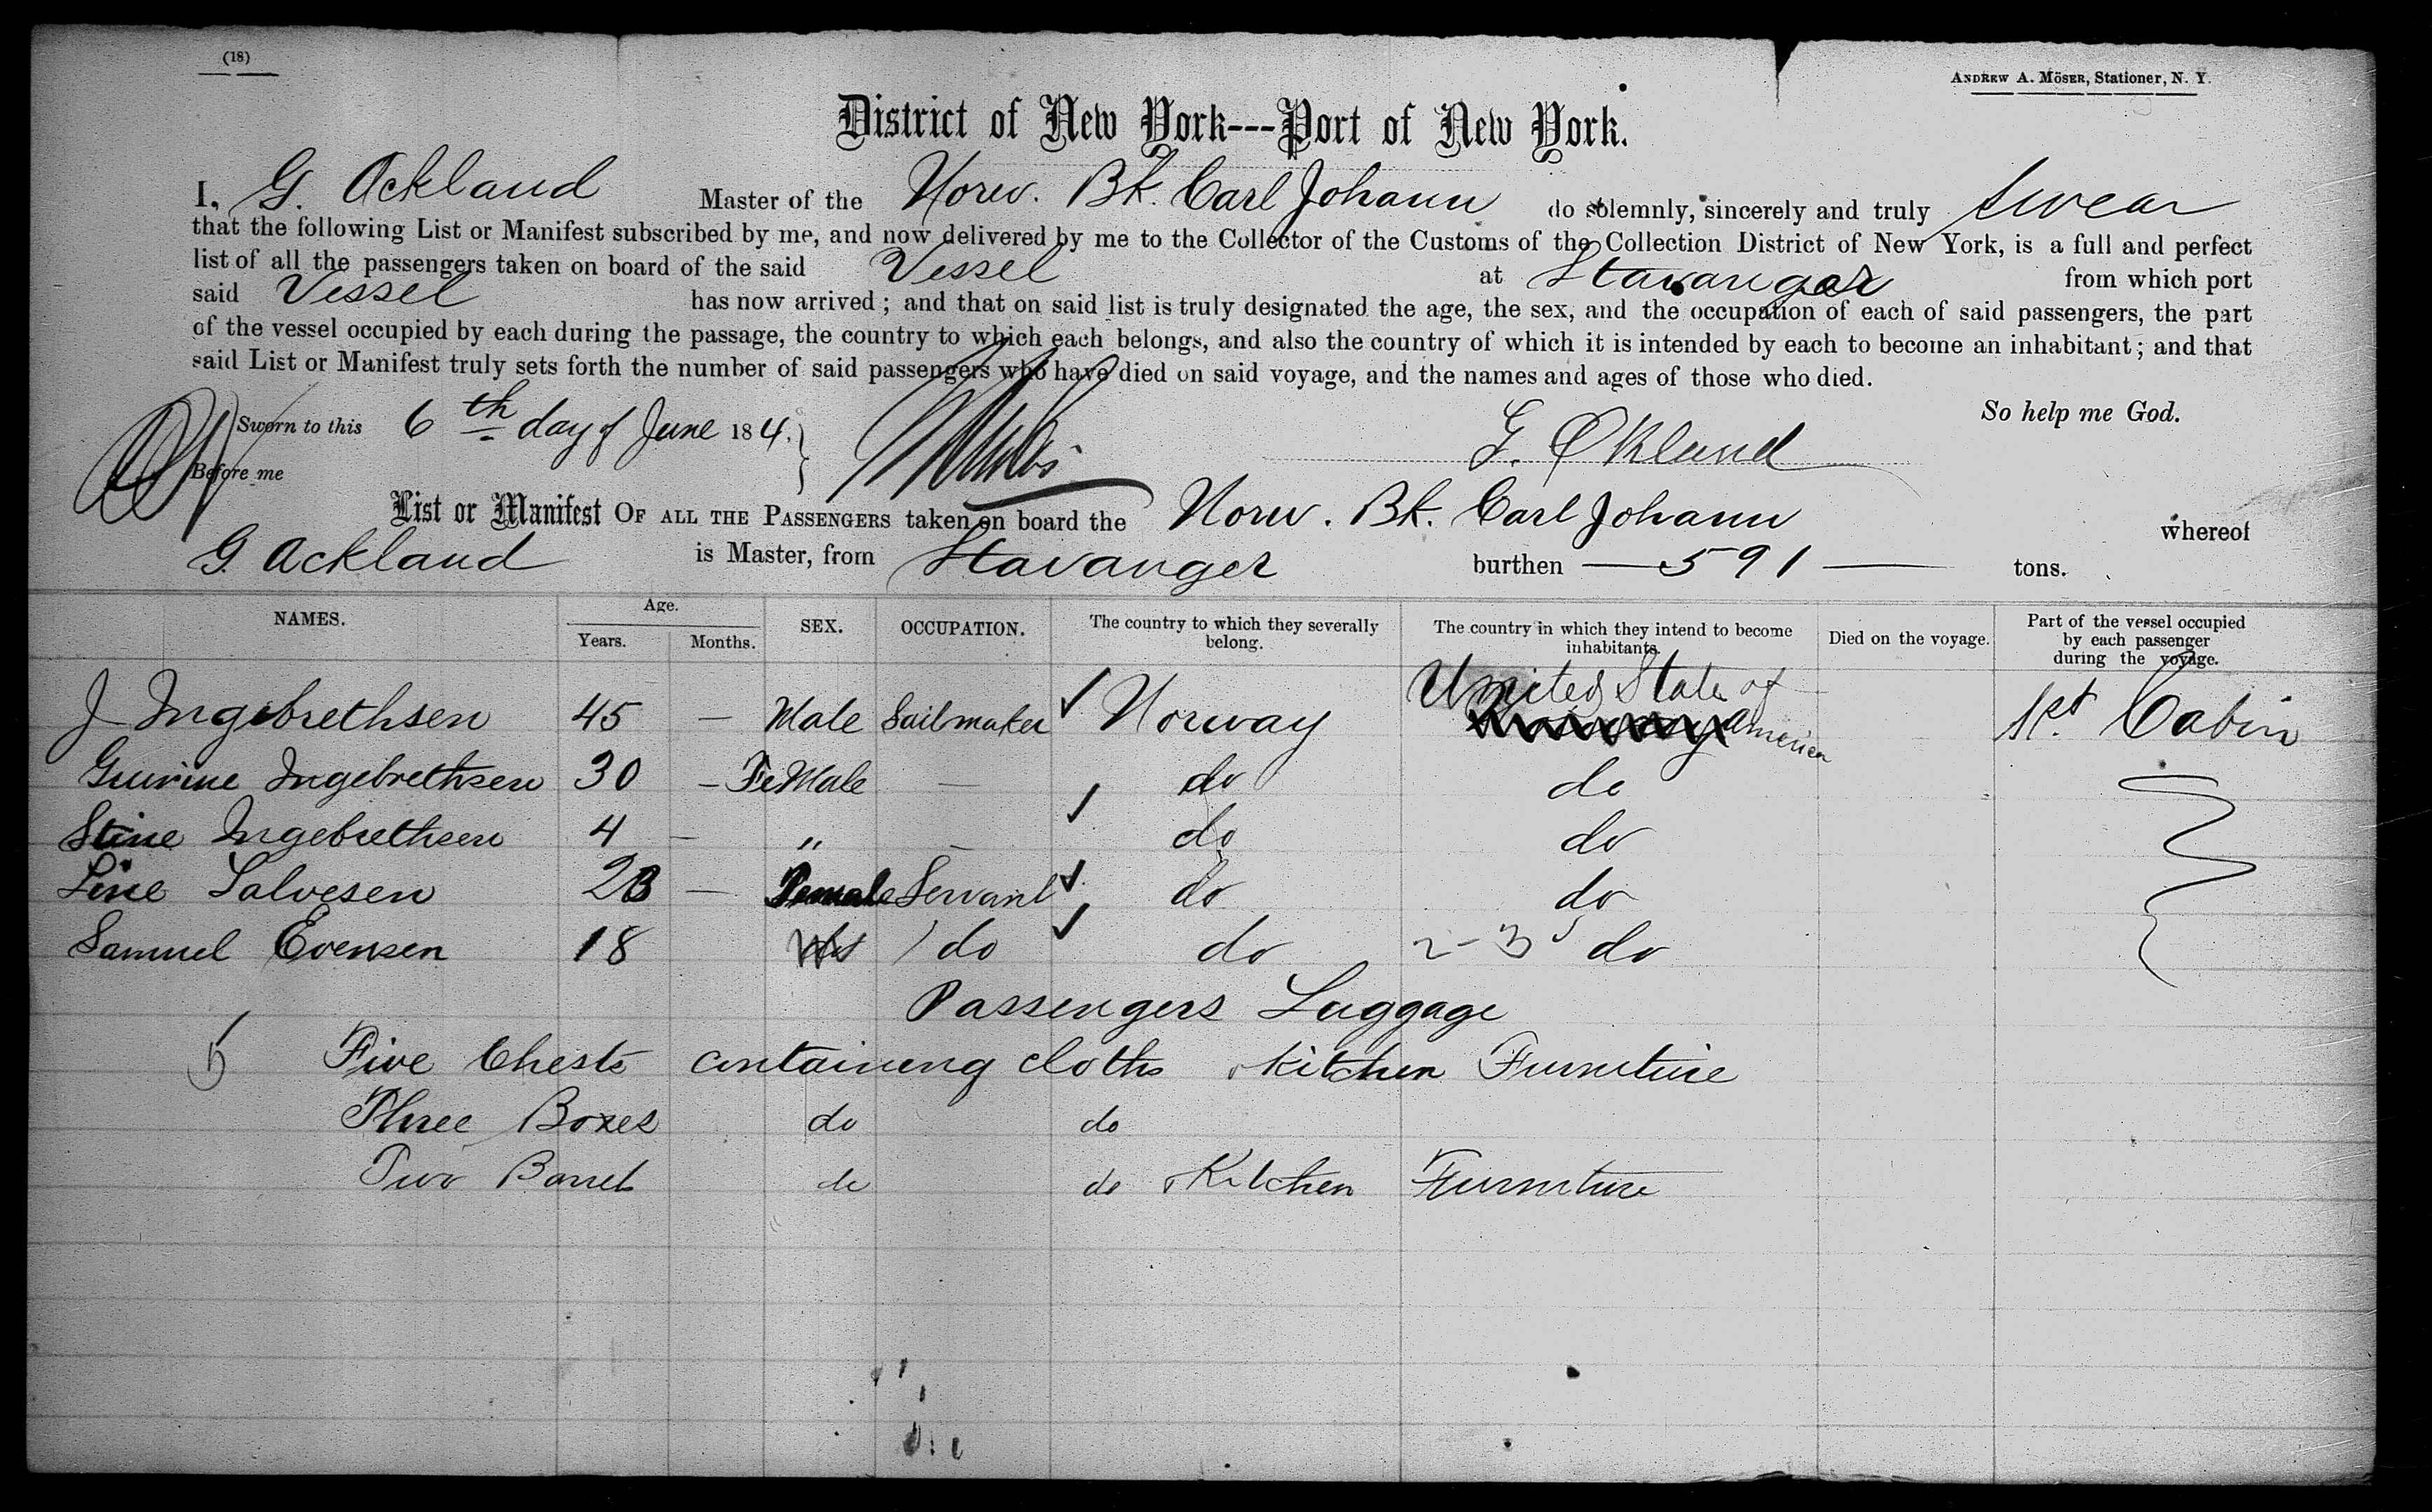 (18)
ANDREW A. MÖSER, Stationer, N. Y.
District of New York---Port of New York.
I, G. Ackland Master of the Norw. Bk. Carl Johann do solemnly, sincerely and truly swear
that the following List or Manifest subscribed by me, and now delivered by me to the Collector of the Customs of the Collection District of New York, is a full and perfect
list of all the passengers taken on board of the said Vessel at Stavanger from which port
said Vessel has now arrived; and that on said list is truly designated the age, the sex, and the occupation of each of said passengers, the part
of the vessel occupied by each during the passage, the country to which each belongs, and also the country of which it is intended by each to become an inhabitant; and that
said List or Manifest truly sets forth the number of said passengers who have died on said voyage, and the names and ages of those who died.
So help me God.
Sworn to this 6th day of June 184.
G. Økland
Before me
List or Manifest OF ALL THE PASSENGERS taken on board the Norw. Bk. Carl Johann whereof
G. Ackland is Master, from Stavanger burthen — 591 — tons.
NAMES. Age. Years. Months. SEX. OCCUPATION. The country to which they severally belong. The country in which they intend to become inhabitants. Died on the voyage. Part of the vessel occupied by each passenger during the voyage.
J Ingebrethsen 45 — Male Sailmaker ✓ Norway United State of America 1st. Cabin
Gurine Ingebrethsen 30 — FeMale — do do
Stine Ingebrethsen 4 — " — do do
Line Salvesen 23 — Female Servant ✓ do do
Samuel Evensen 18 do ✓ do 2-3 do
Passengers Luggage
5 Five Chests containeng cloths kitchen Furneture
Three Boxes do do
Two Barrels do do Kitchen Furneture